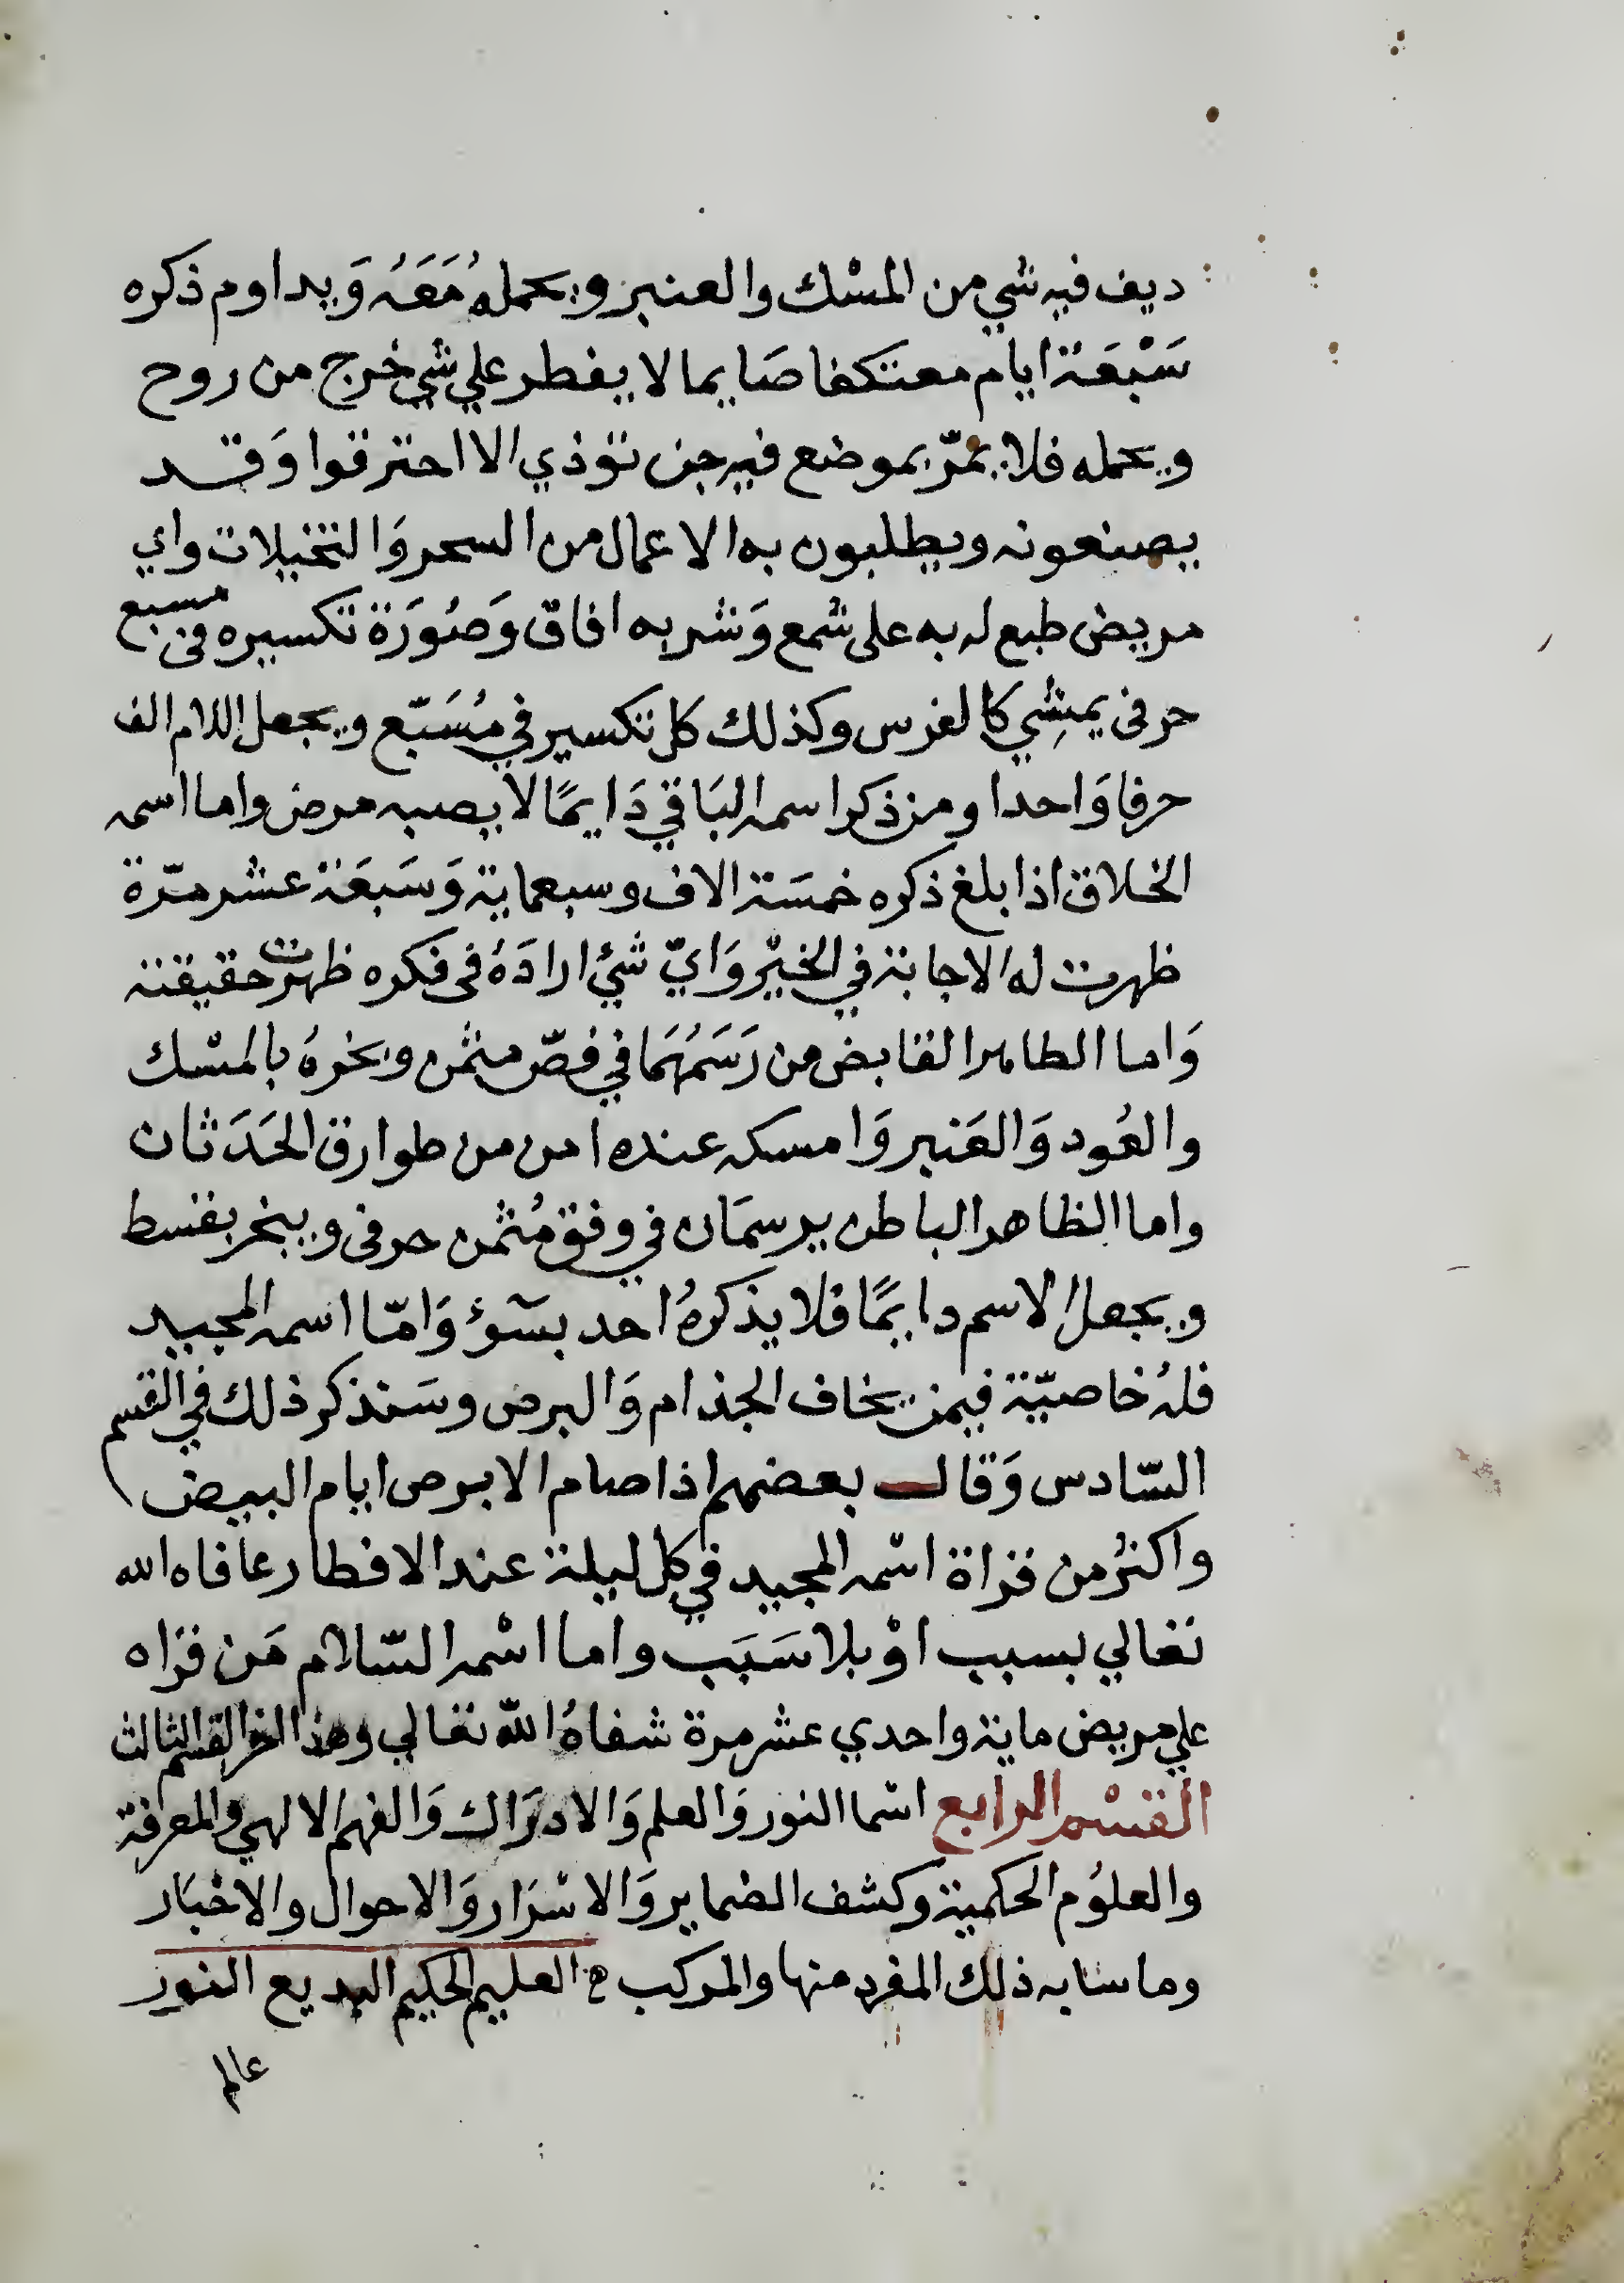 ديف فيه شي من المسْك والعنبر ويحملهُ مَعَهُ وَيداوم ذكره
سَبْعَة ايام معتكفا صَايما لا يفطر علي شي خرج من روح
ويحمله فلا يمرّ بموضع فيه جن تؤذي الا احترقوا وَقد
يصنعونه ويطلبون به الاعمال من السحر وَالتخيلات واي
مريض طبع له به على شمع وَشربه افاق وَصُورَة تكسيره في مسبع
حرفى يمشِي كالفرس وكذلك كل تكسير في مُسَبّع ويجعل اللام الف
حرفا وَاحدا ومن ذكر اسمه البَاقي دَايمًا لا يصيبه مرض واما اسمه
الخلاق اذا بلغ ذكره خمسَة الاف وسبعماية وَسَبعَة عشر مرّة
ظهرت له الاجابة في الخيْر وَايّ شئ ارادَهُ فى فكره ظهرت حقيقته
وَاما الطاهر القابض من رَسَمُهَما في فصّ مثمن وبخرهُ بالمسْك
والعُود وَالعَنبر وَامسكه عنده امن من طوارق الحَدَثان
واما الظاهر الباطن يرسمَان في وفق مُثمن حرفى ويبخر بقسط
ويجعل الاسم دايمًا فلا يذكرهُ احد بسوٓء وَامّا اسمه المجيد
فلهُ خاصيّة فيمن يخاف الجذام وَالبرص وسَنذكر ذلك في القسم
السّادس وَقال بعضهم اذا صام الابرص ايام البيض
واكثرُ من قراة اسْمه المجيد في كل ليلة عند الافطار عافاه الله
تعالي بسبب اوْ بلا سَبَب واما اسْمه السّلام مَن قرَاه
علي مريض ماية واحدي عشر مرة شفاهُ اللّه تعالي وهذا اخر القسم الثالث
القسْم الرابع اسْما النور وَالعلم وَالادرَاك وَالفهم الالهي والمعرفة
والعلوُم الحكمية وكشف الضماير وَالاسْرَار وَالاحوال والاخْبَار
وما سابه ذلك المفرد منها والمركب العليم الحكيم البديع النور
عالم